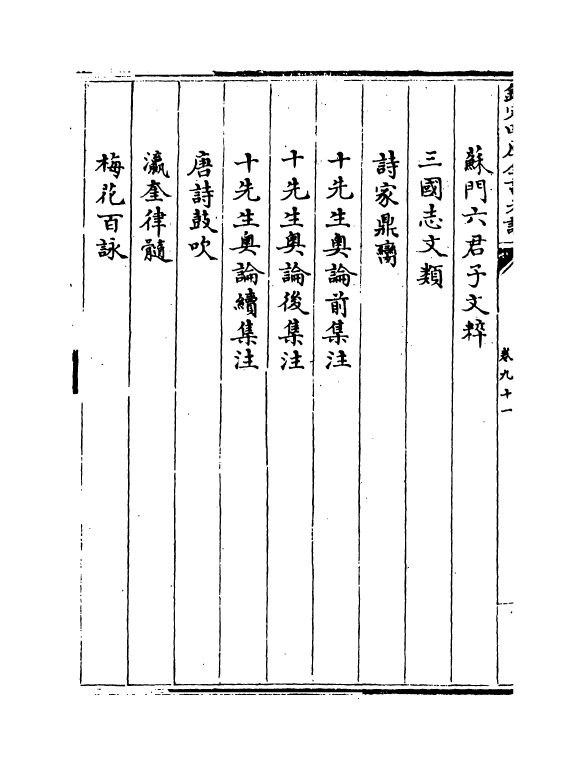 蘇門六君子文粹
三國志文類
詩家鼎臠
十先生奥論前集注
十先生奥論後集注
十先生奥論續集注
唐詩鼓吹
瀛奎律髓
梅花百詠
卷九十一